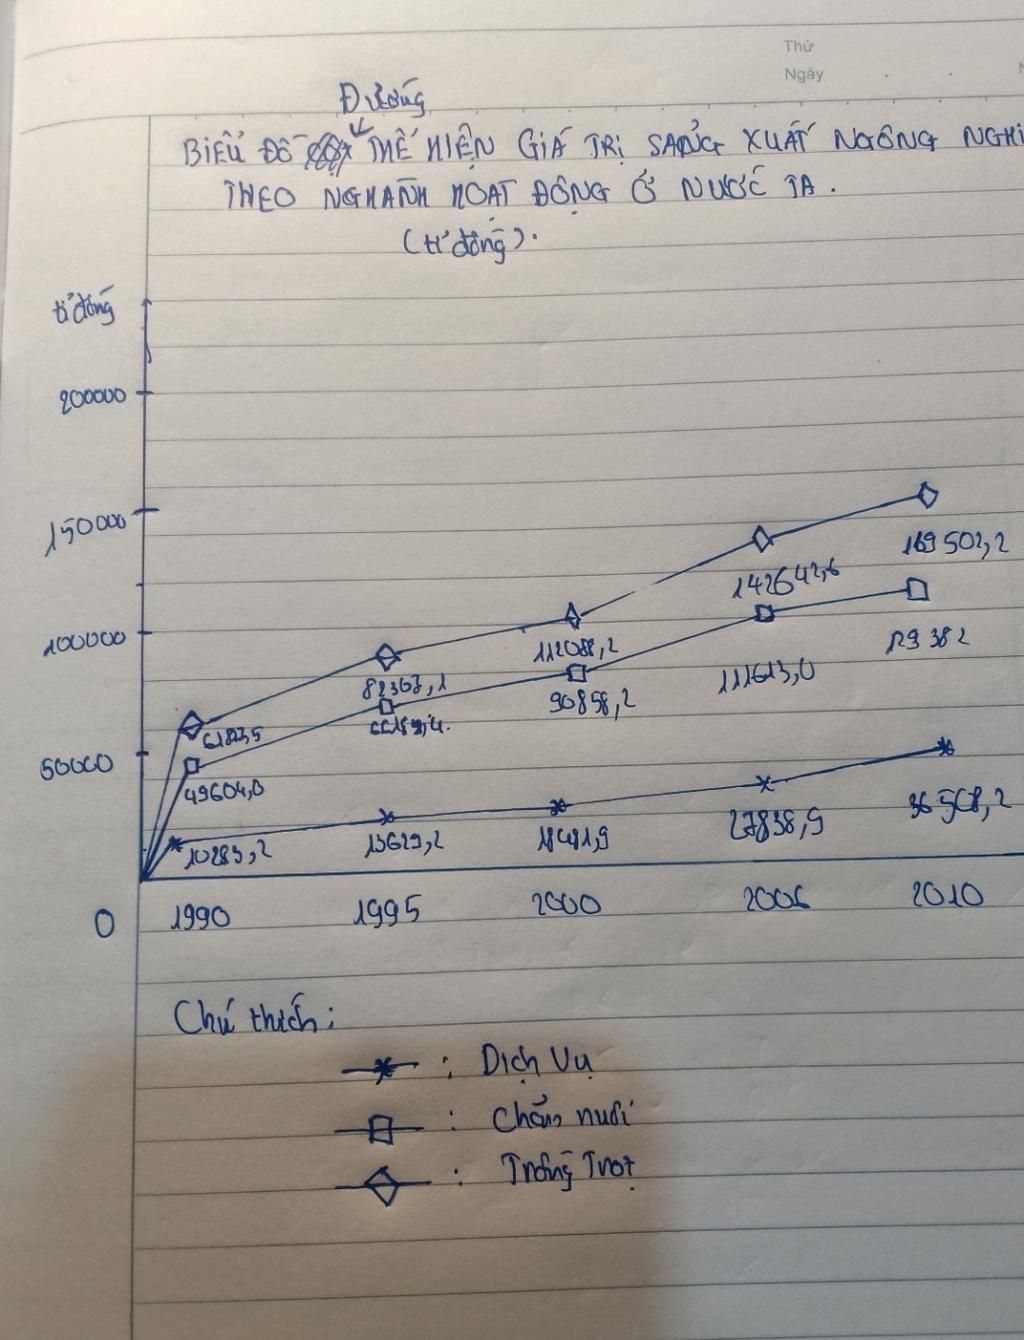 Thứ
Ngày
Đường
BIỂU ĐỒ THỂ HIỆN GIÁ TRỊ SẢNG XUẤT NGÔNG NGHI
THEO NGHÀNH HOẠT ĐỘNG Ở NƯỚC TA.
(tỉ đồng).
tỉ đồng
200000
150000
169502,2
142642,6
129382
100000
112088,2
82367,1
111613,0
90858,2
66189,4.
50000
49604,0
36508,2
27838,9
18481,9
13629,2
10283,2
0 1990 1995 2000 2006 2010
Chú thích:
: Dịch Vụ
: Chăn nuôi
: Trồng Trọt